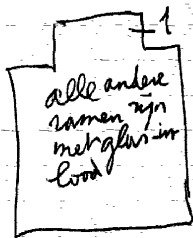 1
alle andere
ramen zijn
met glas in
lood